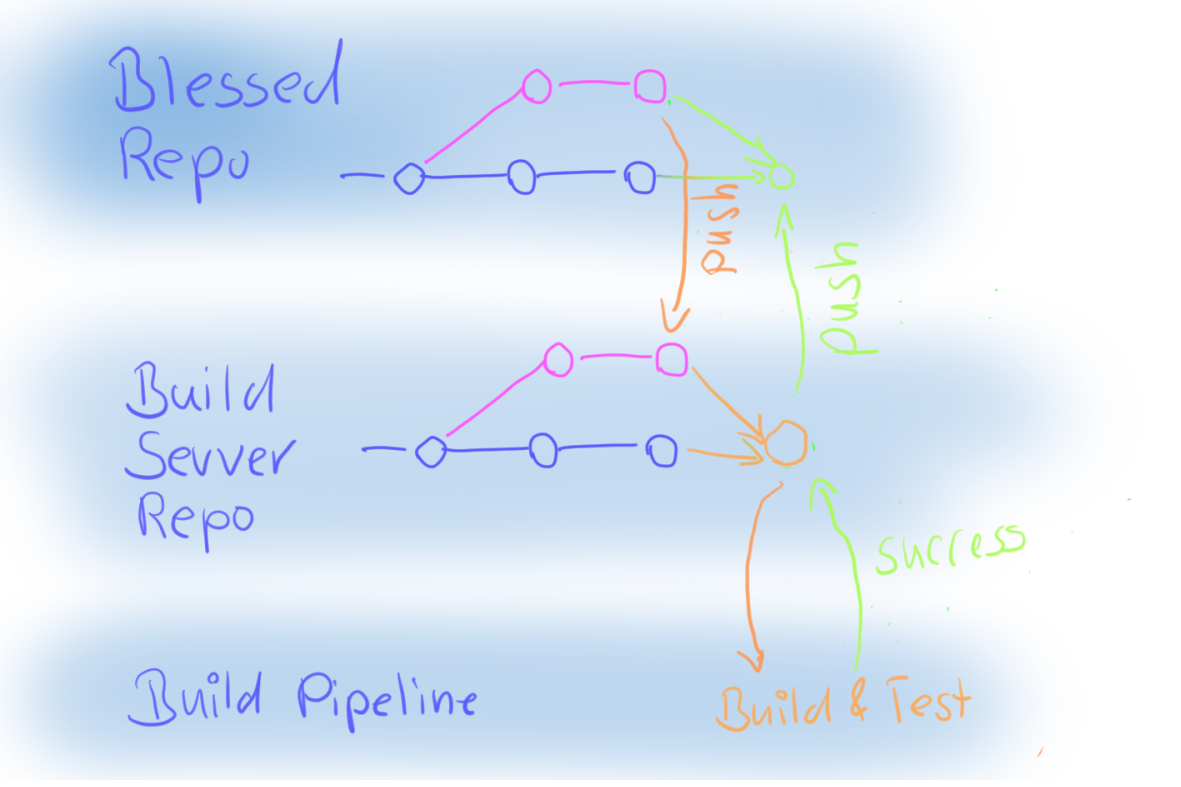 Blessed
Repo
push
push
Build
Server
Repo
success
Build Pipeline
Build & Test